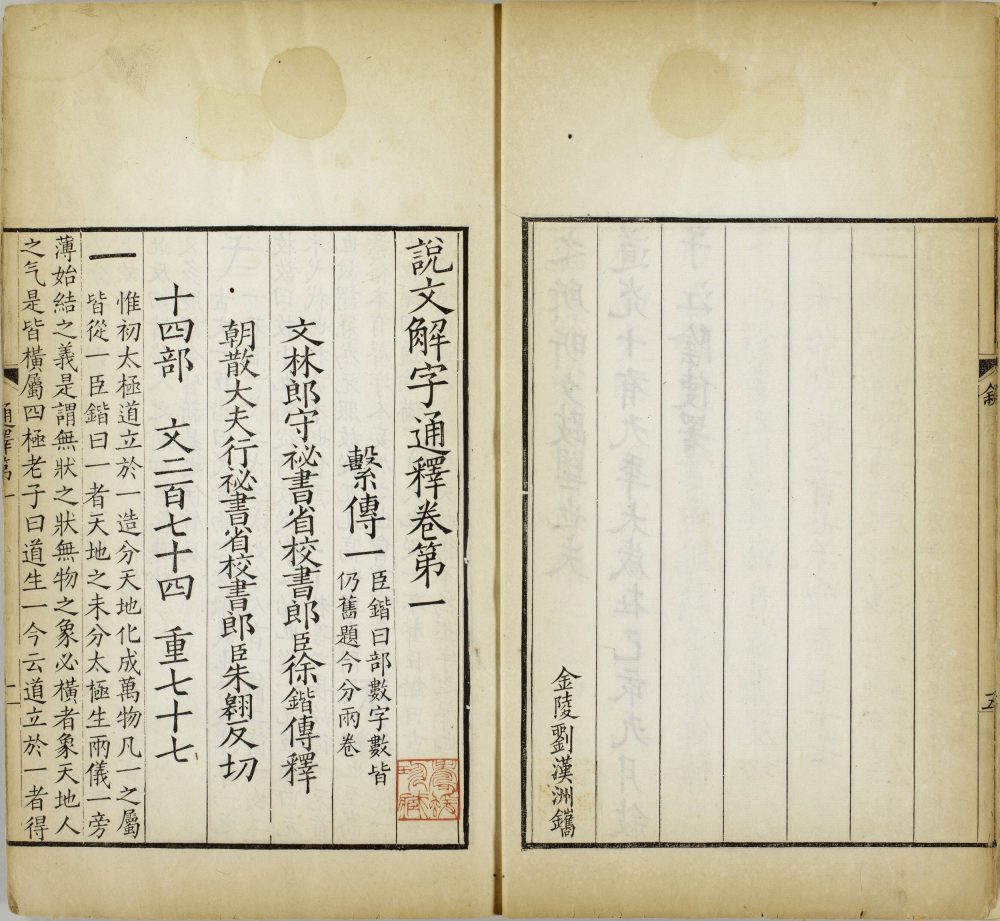 敘
五
金陵劉漢洲鐫
說文解字通釋卷第一
繫傳一
臣鍇曰部數字數皆
仍舊題今分兩卷
文林郎守祕書省校書郎臣徐鍇傳釋
朝散大夫行祕書省校書郎臣朱翱反切
十四部 文二百七十四 重七十七
一
惟初太極道立於一造分天地化成萬物凡一之屬
皆從一臣鍇曰一者天地之未分太極生兩儀一旁
薄始結之義是謂無狀之狀無物之象必橫者象天地人
之气是皆橫屬四極老子曰道生一今云道立於一者得
通釋第一